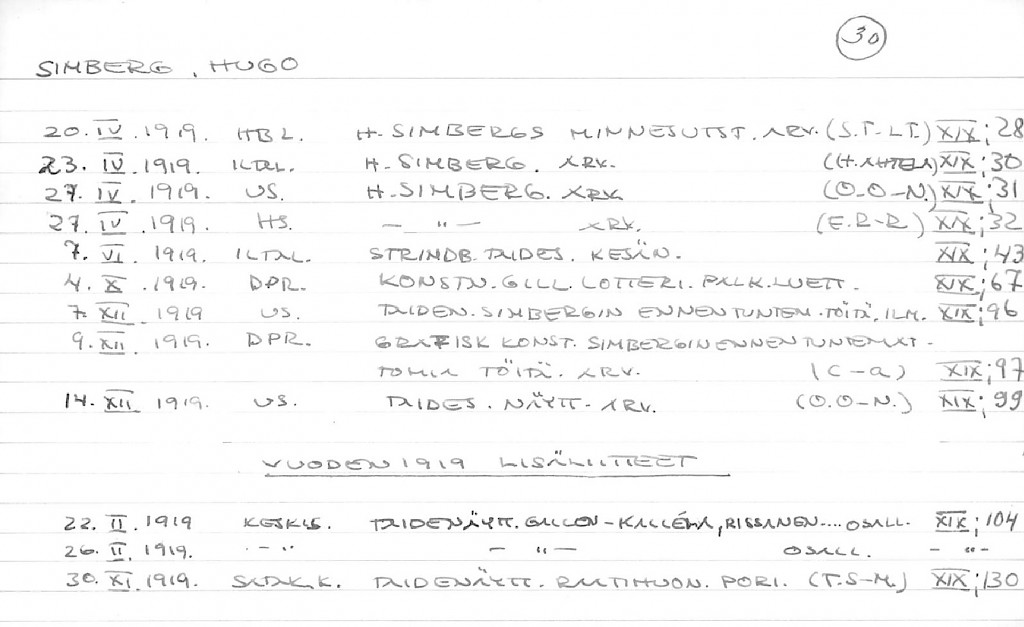 30
SIMBERG, HUGO
20. IV. 1919. HBL. H. SIMBERGS MINNESUTST. ARV. (S.T-LT.) XIX; 28
23. IV. 1919. ILTAL. H. SIMBERG. ARV. (H. AHTELA) XIX; 30
27. IV. 1919. US. H. SIMBERG. ARV. (O.O-N.) XIX; 31
27. IV. 1919. HS. — " — ARV. (E.R-R) XIX; 32
7. VI. 1919. ILTAL. STRINDB. TAIDES. KESÄN. XIX; 43
4. X. 1919. DPR. KONSTN. GILL. LOTTERI. PALK. LUETT. XIX; 67
7. XII. 1919 US. TAIDEN. SIMBERGIN ENNEN TUNTEM. TÖITÄ. ILM. XIX; 96
9. XII. 1919. DPR. GRAFISK KONST. SIMBERGIN ENNEN TUNTEMAT-
TOMIA TÖITÄ. ARV. (C-a) XIX; 97
14. XII 1919. US. TAIDES. NÄYTT. ARV. (O.O-N.) XIX; 99
VUODEN 1919 LISÄLIITTEET
22. II. 1919 KESKIS. TAIDENÄYTT. GALLEN-KALLÉLA, RISSANEN.... OSALL. XIX; 104
26. II. 1919. - — " — " — OSALL. - " -
30. XI. 1919. SATAK.K. TAIDENÄYTT. RAATIHUON. PORI. (T.S-M.) XIX; 130